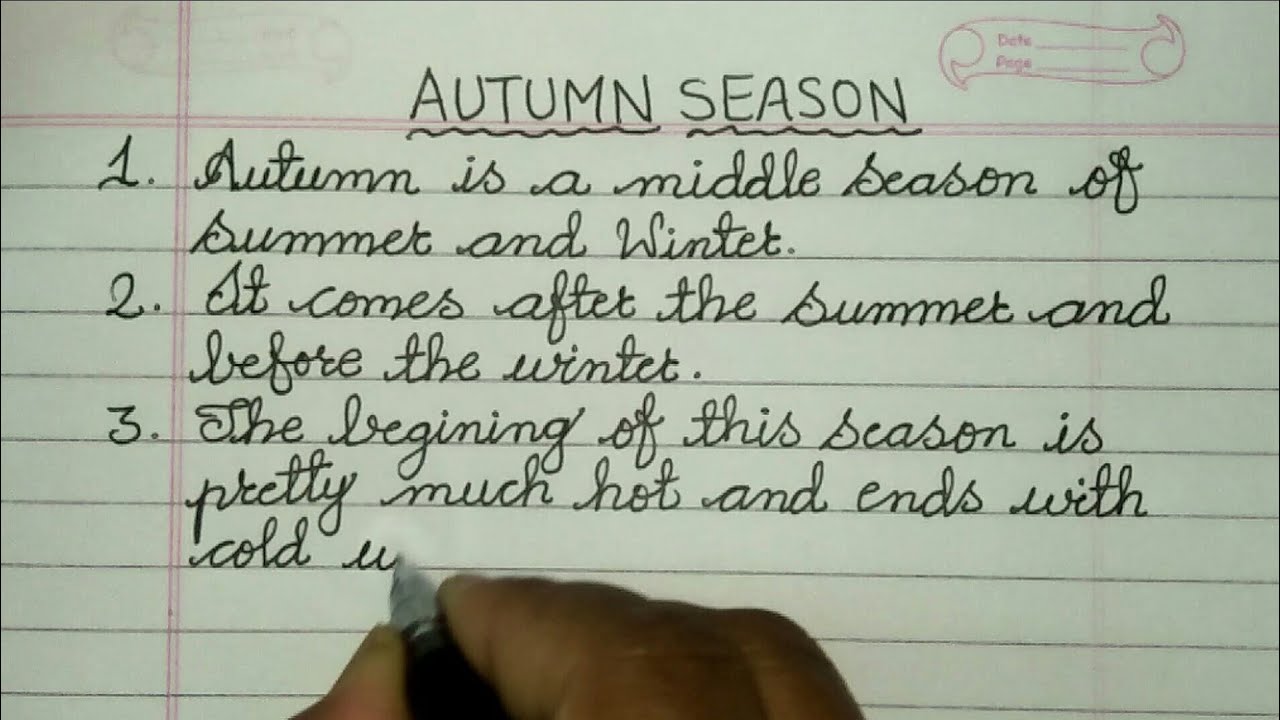 Date
Page
AUTUMN SEASON
1. Autumn is a middle season of
summer and Winter.
2. It comes after the summer and
before the winter.
3. The begining of this season is
pretty much hot and ends with
cold